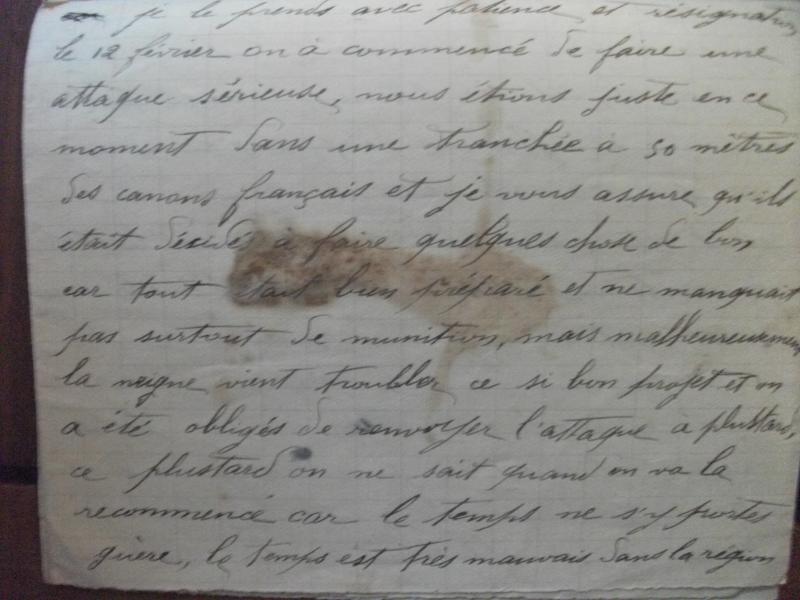 je le prends avec patience et résignation
le 12 février on à commencé de faire une
attaque sérieuse, nous étions juste en ce
moment dans une tranchée à 50 mètres
des canons français et je vous assure qu'ils
était décidés à faire quelques chose de bon
car tout était bien préparé et ne manquait
pas surtout de munition, mais malheureusement
la neigne vient troubler ce si bon projet et on
a été obligés de renvoyer l'attaque à plustard,
ce plustard on ne sait quand on va la
recommencé car le temps ne s'y portes
guère, le temps est très mauvais dans la région